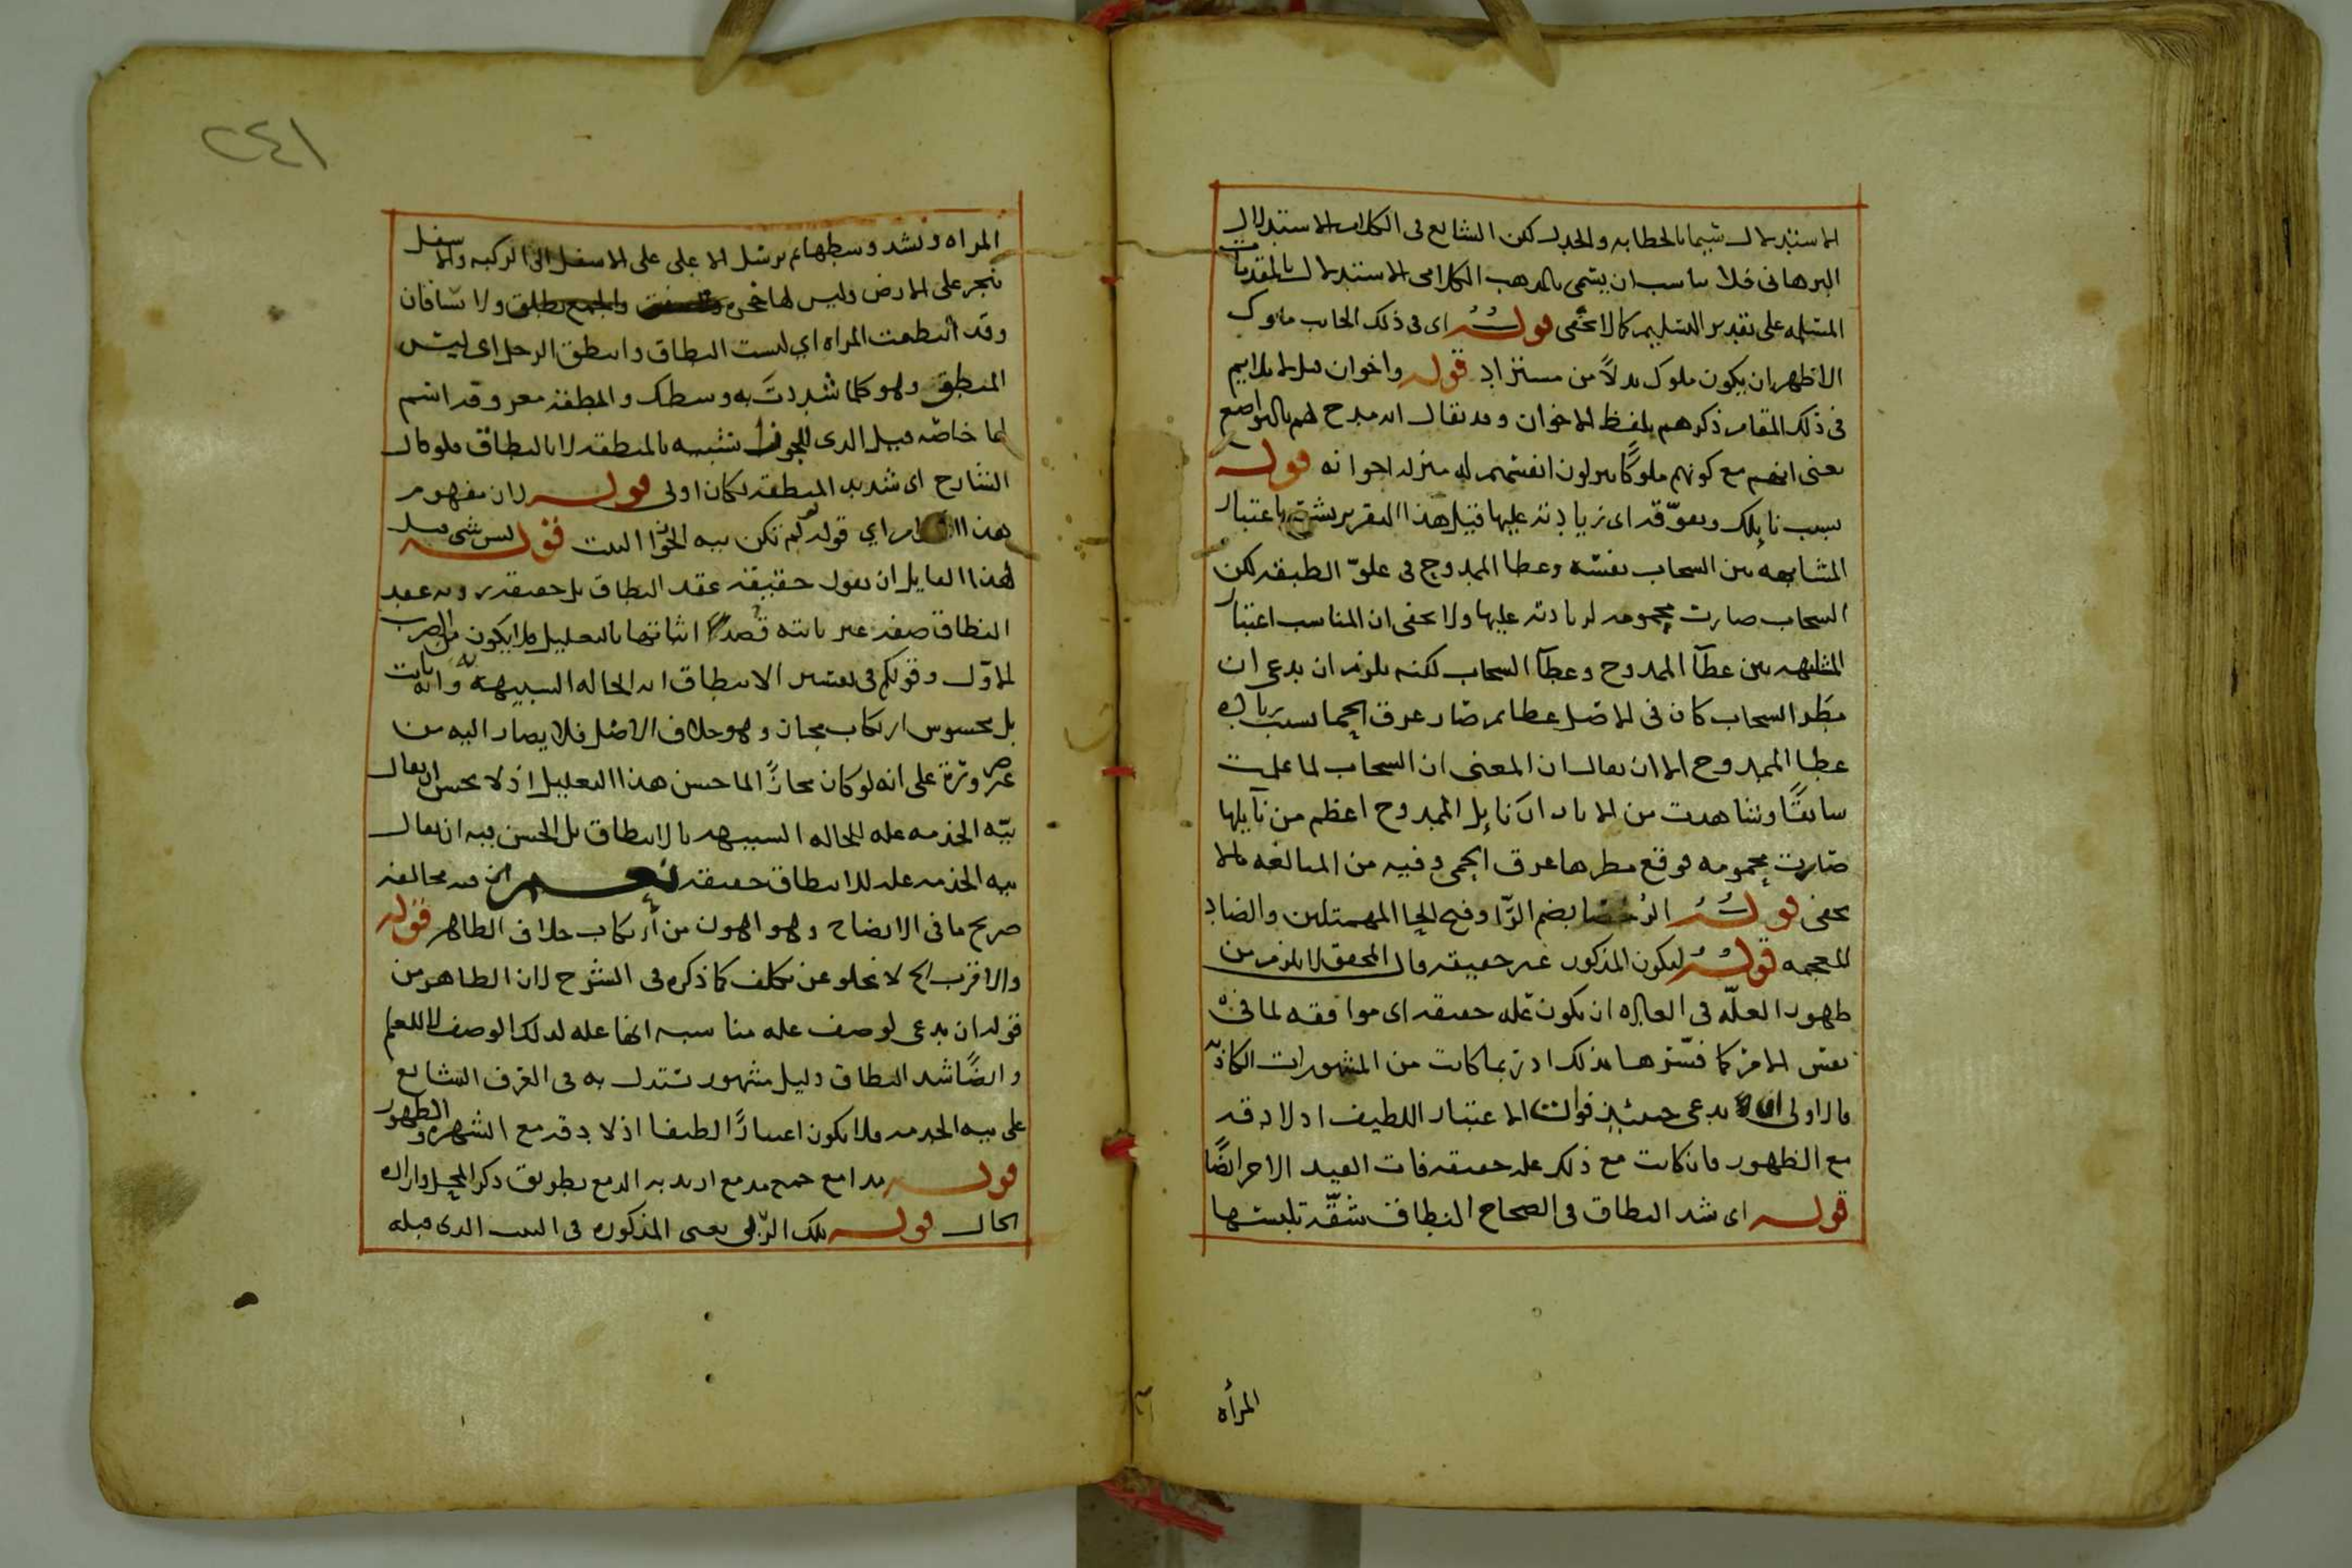 الاستدلال سيما بالخطابه والجدل لكن الشايع فى الكلام الاستدلال
البرهانى فلا يناسب ان يسمى بالمذهب الكلامى الاستدلال بالمقدمات
المسلمه على تقدير التسليم كما لا يخفى قوله اى فى ذلك الجانب ملوك
الاظهر ان يكون ملوك بدلاً من مستراد قوله واخوان
فى ذلك المقام ذكرهم بلفظ الاخوان وقد يقال انه مدح لهم بالتواضع
يعنى انهم مع كونهم ملوكًا ينزلون انفسهم له منزله اخوانه قوله
بسبب نايلك وتفوقه اى زيادته عليها قيل هذا التقرير يشعر باعتبار
المشابهه بين السحاب نفسه وعطا الممدوح فى علوّ الطبقه لكن
السحاب صارت محمومه لزيادته عليها ولا يخفى ان المناسب اعتبار
المشابهه بين عطآ الممدوح وعطآ السحاب لكنه يلزم ان يدعى ان
مطر السحاب كان فى الاصل عطا ثم صار عرق الحمى بسبب زياده
عطا الممدوح الا ان يقال ان المعنى ان السحاب لما علمت
سابقًا وشاهدت من الاثار ان نايل الممدوح اعظم من نآيلها
صارت محمومه فوقع مطرها عرق الحمى وفيه من المبالغه ما لا
يخفى قوله الرحضا بضم الرّا وفتح الحا المهملتين والضاد
المعجمه قوله ليكون المذكور غير حقيقه قال المحقق لا يلزم من
ظهور العلّه فى العاده ان يكون علّه حقيقه اى موافقه لما فى
نفس الامر كما فسّرها بذلك اذ ربما كانت من المشهورات الكاذبه
فالاولى ان يدعى حينئذٍ فوات الاعتبار اللطيف اذ لا دقه
مع الظهور فان كانت مع ذلك عله حقيقه فات القيد الاخر ايضًا
قوله اى شد النطاق فى الصحاح النطاق شقّه تلبسها
المرأه
٢٤١
المراه وتشد وسطها ثم ترسل الاعلى على الاسفل الى الركبه والاسفل
ينجر على الارض وليس لها حجزه ولا ساقان
وقد انتطقت المراه اي لبست النطاق وانتطق الرجل اى لبس
المنطق وهو كلما شددتَ به وسطك والمنطقه معروفه اسم
لها خاصّه قيل الذى للجوزا تشبيه بالمنطقه لا بالنطاق فلو قال
الشارح اى شديد المنطقه لكان اولى قوله لان مفهوم
هذا الكلام اي قوله لو لم تكن نيه الجوزا البيت قوله ليس بشى قيل
لهذا القايل ان يقول حقيقه عقد النطاق بل حقيقه رويه عقد
النطاق صفه غير ثابته قصد اثباتها بالتعليل فلا يكون من الضرب
الاوّل وقولكم فى تفسير الانتطاق انه الحاله الشبيهه به وانه ثابت
بل محسوس ارتكاب مجاز وهو خلاف الاصل فلا يصار اليه من
غير ضرورة على انه لو كان مجازًا لما حسن هذا التعليل اذ لا يحسن ان يقال
نيّه الخدمه عله للحاله الشبيهه بالانتطاق بل الحسن فيه ان يقال
نيه الخدمه عله للانتطاق حقيقه نعم ان فيه مخالفه
صريح ما فى الايضاح وهو اهون من ارتكاب خلاف الظاهر قوله
والاقرب الخ لا يخلو عن تكلف كما ذكره فى الشرح لان الظاهر من
قوله ان يدعى لوصف عله مناسبه انها عله لذلك الوصف لا للعلم
وايضًا شد النطاق دليل مشهور يستدل به فى العرف الشايع
على نيه الخدمه فلا يكون اعتبارًا لطيفا اذ لا دقه مع الشهره والظهور
قوله مدامع جمع مدمع اريد به الدمع بطريق ذكر المحل واراده
الحال قوله تلك الرّبى يعنى المذكوره فى البيت الذى قبله